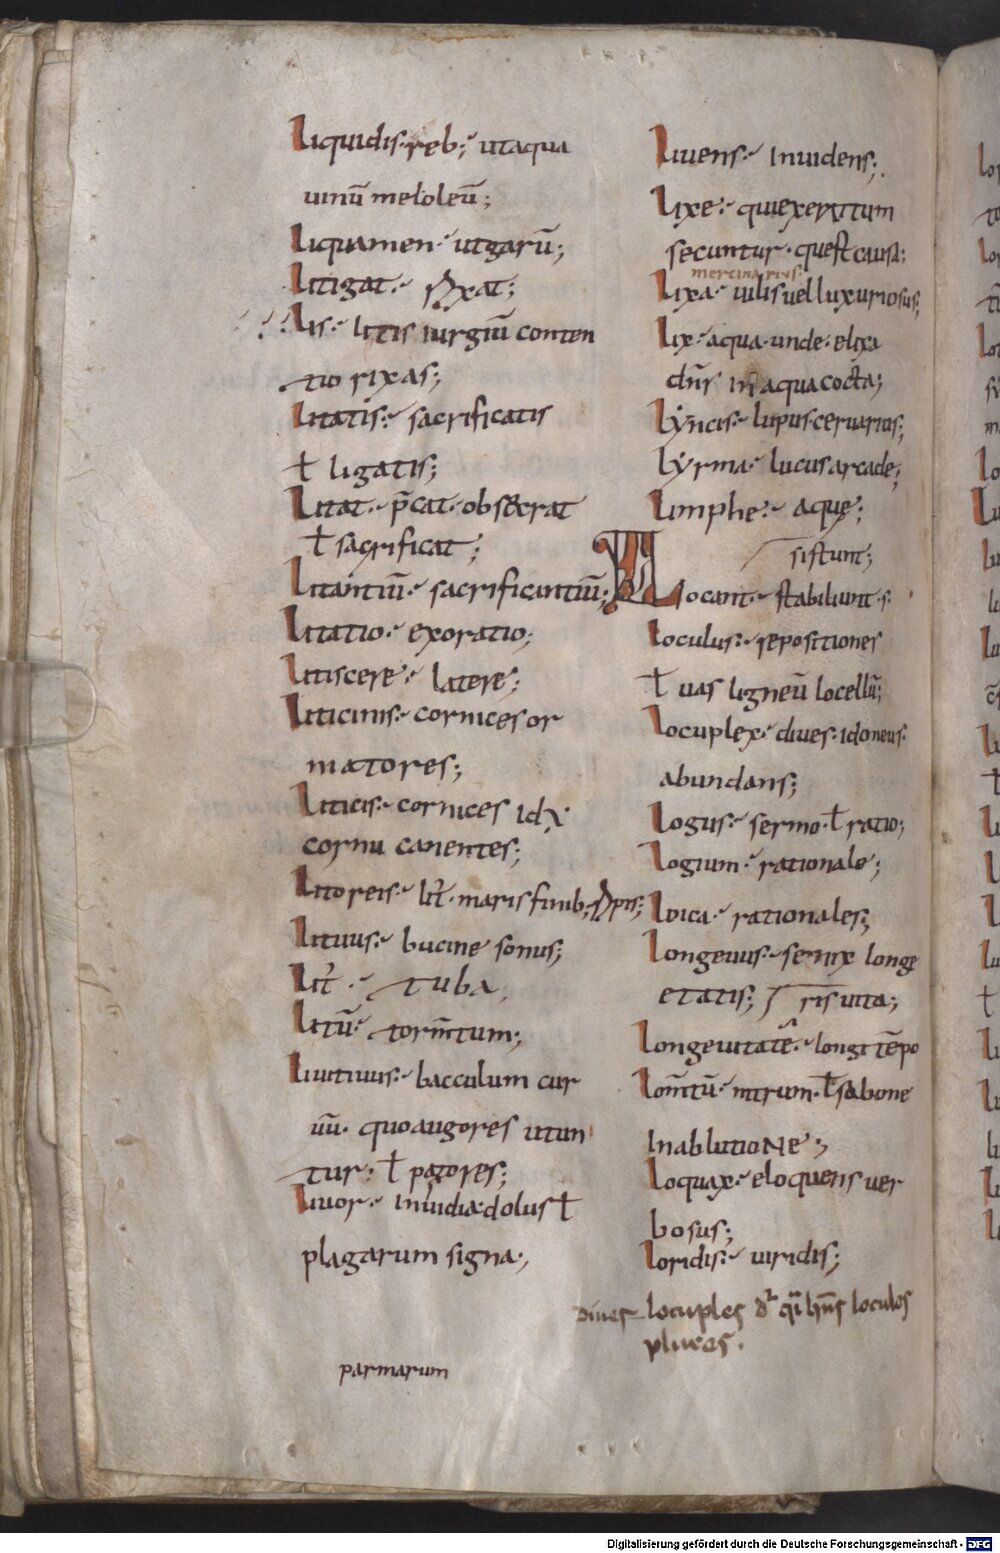 Liquidis reb; ut aqua
uinū mel oleū;
Liquamen ut garū;
Litigat rixat;
Lis litis iurgiū conten
tio rixas;
Litatis sacrificatis
ł ligatis;
Litat p̄cat obsecrat
ł sacrificat;
Litantiū sacrificantiū;
Litatio exoratio;
Litiscere latere;
Liticinis cornices or
matores;
Liticis cornices id
cornu canentes;
Litoreis maris finib;
Lituus bucine sonus;
Lit tuba,
Litū torm̄tum;
Liutiuus bacculum cur
uū quo augores utun
tur ł patores;
Liuor inuidia dolus ł
plagarum signa;
parmarum
Liuens inuidens;
Lixe qui exercitum
secuntur questi causa;
mercinarius
Lixa uilis uel luxuriosus;
Lix aqua unde elixa
in aqua cocta;
Lyncis lupus ceruarius;
Lyrma lucus arcade;
Limphe aque;
sistunt;
Locant stabiliunt
Loculus repositiones
ł uas ligneū locellū;
Locuplex diues idoneus
abundans;
Logus sermo ł ratio;
Logium rationale;
Loica rationales;
Longeuus senix longe
etatis; ris uita;
Longeuitatē longi tēpo
Lom̄tū nitrum ł sabone
in ablutione;
Loquax eloquens uer
bosus;
Loridis uiridis;
diues locuples qi hn̄s loculos
plures.
Digitalisierung gefördert durch die Deutsche Forschungsgemeinschaft - DFG